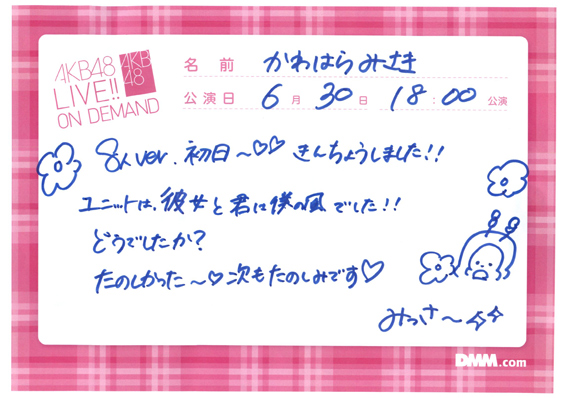 AKB48
LIVE!!
ON DEMAND
AKB
48
名前 かわはらみさき
公演日 6月30日 18:00公演
8人ver.初日〜♡♡ きんちょうしました!!
ユニットは、彼女と君は僕の風でした!!
どうでしたか?
たのしかった〜♡次もたのしみです♡
みっさ〜
DMM.com